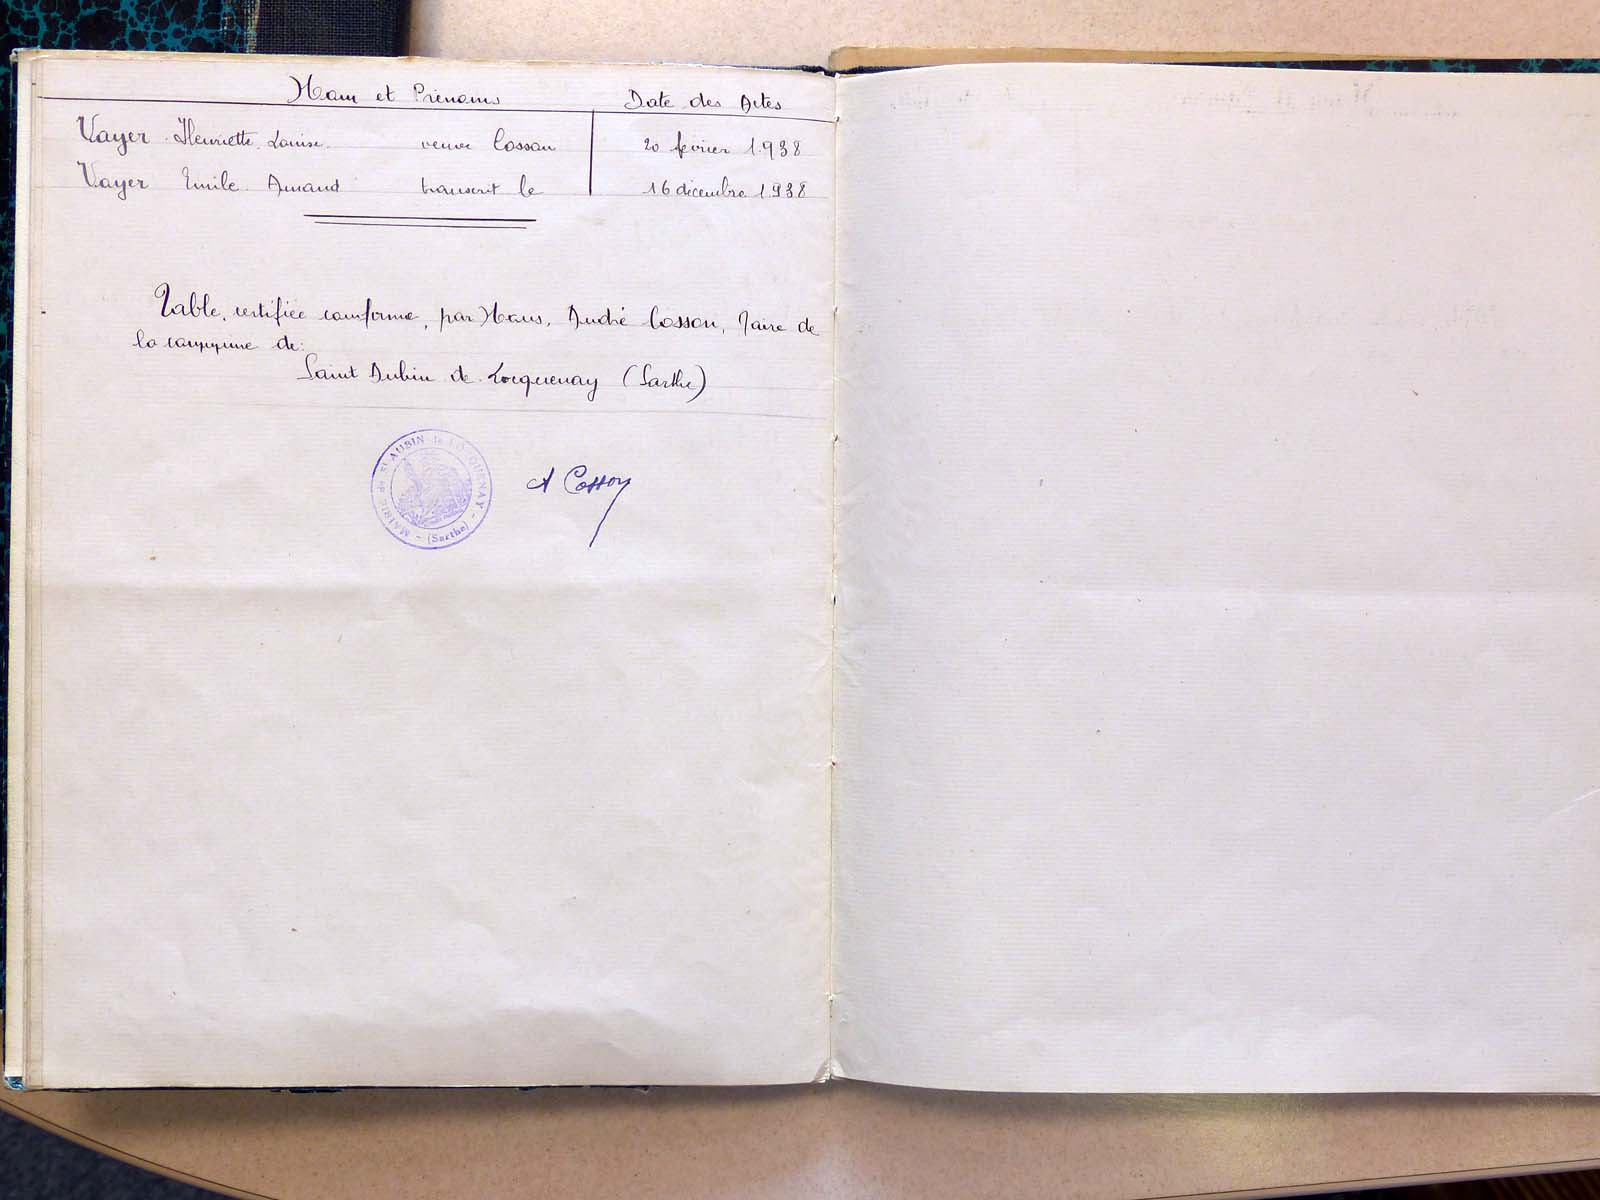 Nom et Prénoms Date des Actes
Vayer Henriette Louise veuve Cosson 20 février 1.938
Vayer Emile Amand transcrit le 16 décembre 1.938
Table, certifiée conforme, par Nous, André Cosson, Maire de
la commune de:
Saint Aubin de Locquenay (Sarthe)
MAIRIE de St AUBIN-de-LOCQUENAY - (Sarthe) -
A Cosson